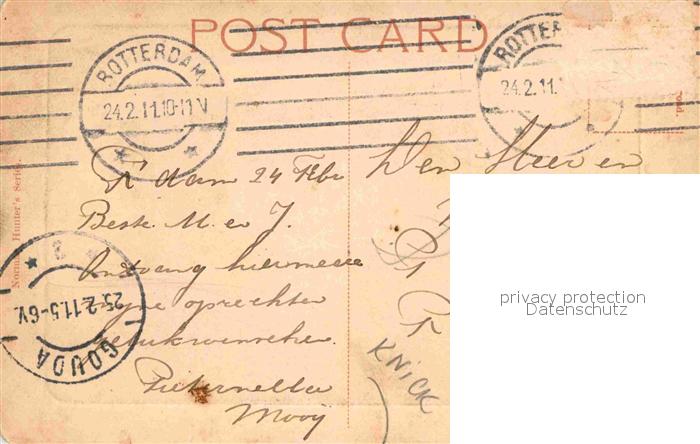 POST CARD
ROTTERDAM
24.2.11.10-11V
ROTTER
24.2.11.
Den Heer en
R dam 24 Febr
Beste M. en J.
Ontvang hiermeee
mijne oprechte
gelukwenschen
Pieternella
Mooij
Hunter's Series.
GOUDA
25.2.11.5-6V.
3
KNICK
privacy protection
Datenschutz